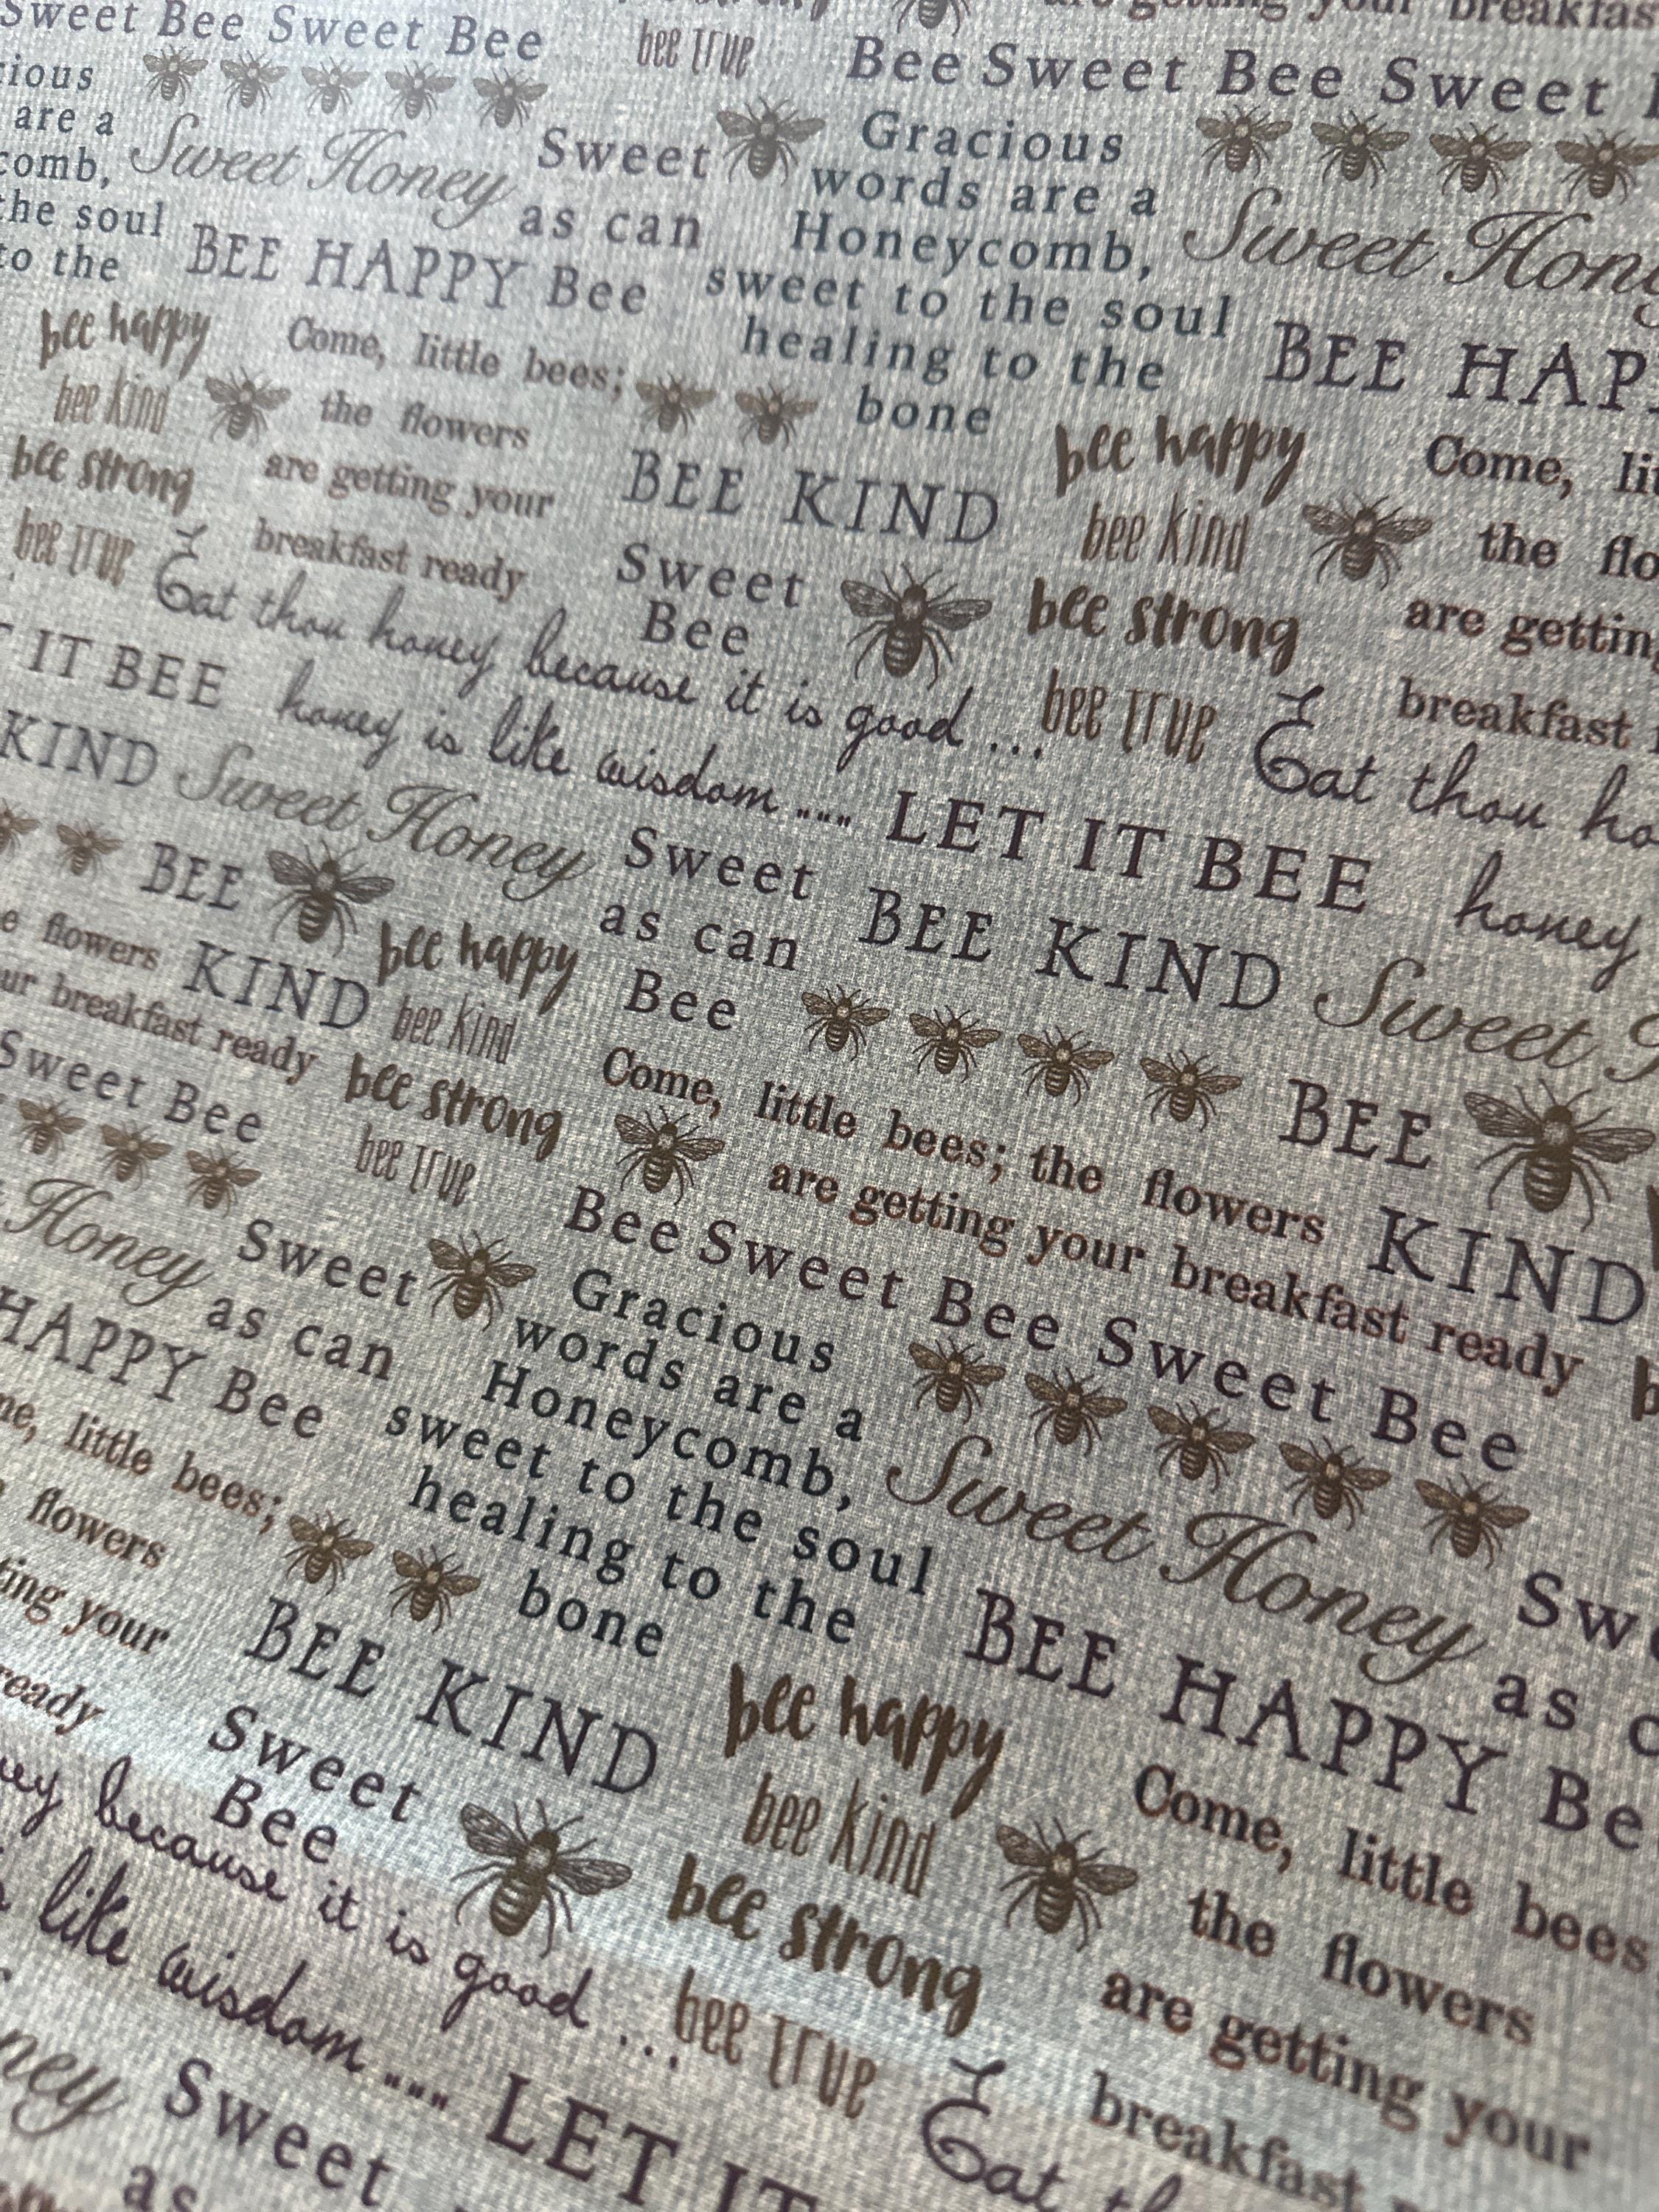 are getting your breakfast
Sweet Bee Sweet Bee bee true Bee Sweet Bee Sweet
are a Sweet Gracious
comb, Sweet Honey as can words are a
the soul Honeycomb, Sweet
to the BEE HAPPY Bee sweet to the soul
healing to the BEE
bee happy Come, little bees; bone
bee kind the flowers bee happy Come,
bee strong are getting your BEE KIND bee kind the
bee true breakfast ready Sweet bee strong are
Eat thou honey because it is good ... Bee bee true breakfast
IT BEE honey is like wisdom .... LET IT BEE Eat thou
KIND Sweet Honey Sweet BEE KIND honey
BEE as can Sweet
flowers KIND bee happy Bee BEE
breakfast ready bee kind Come, little bees; the flowers KIND
Sweet Bee bee strong are getting your breakfast ready
bee true Bee Sweet Bee Sweet Bee
Honey Sweet Gracious
HAPPY Bee as can words are a
little bees; Honeycomb, Sweet Honey as
flowers sweet to the soul BEE HAPPY
your healing to the
BEE KIND bone
bee happy Come, little bees
Sweet bee kind the flowers
Bee bee strong are getting your
because it is good ... bee true breakfast
like wisdom .... LET IT Eat
Sweet
as